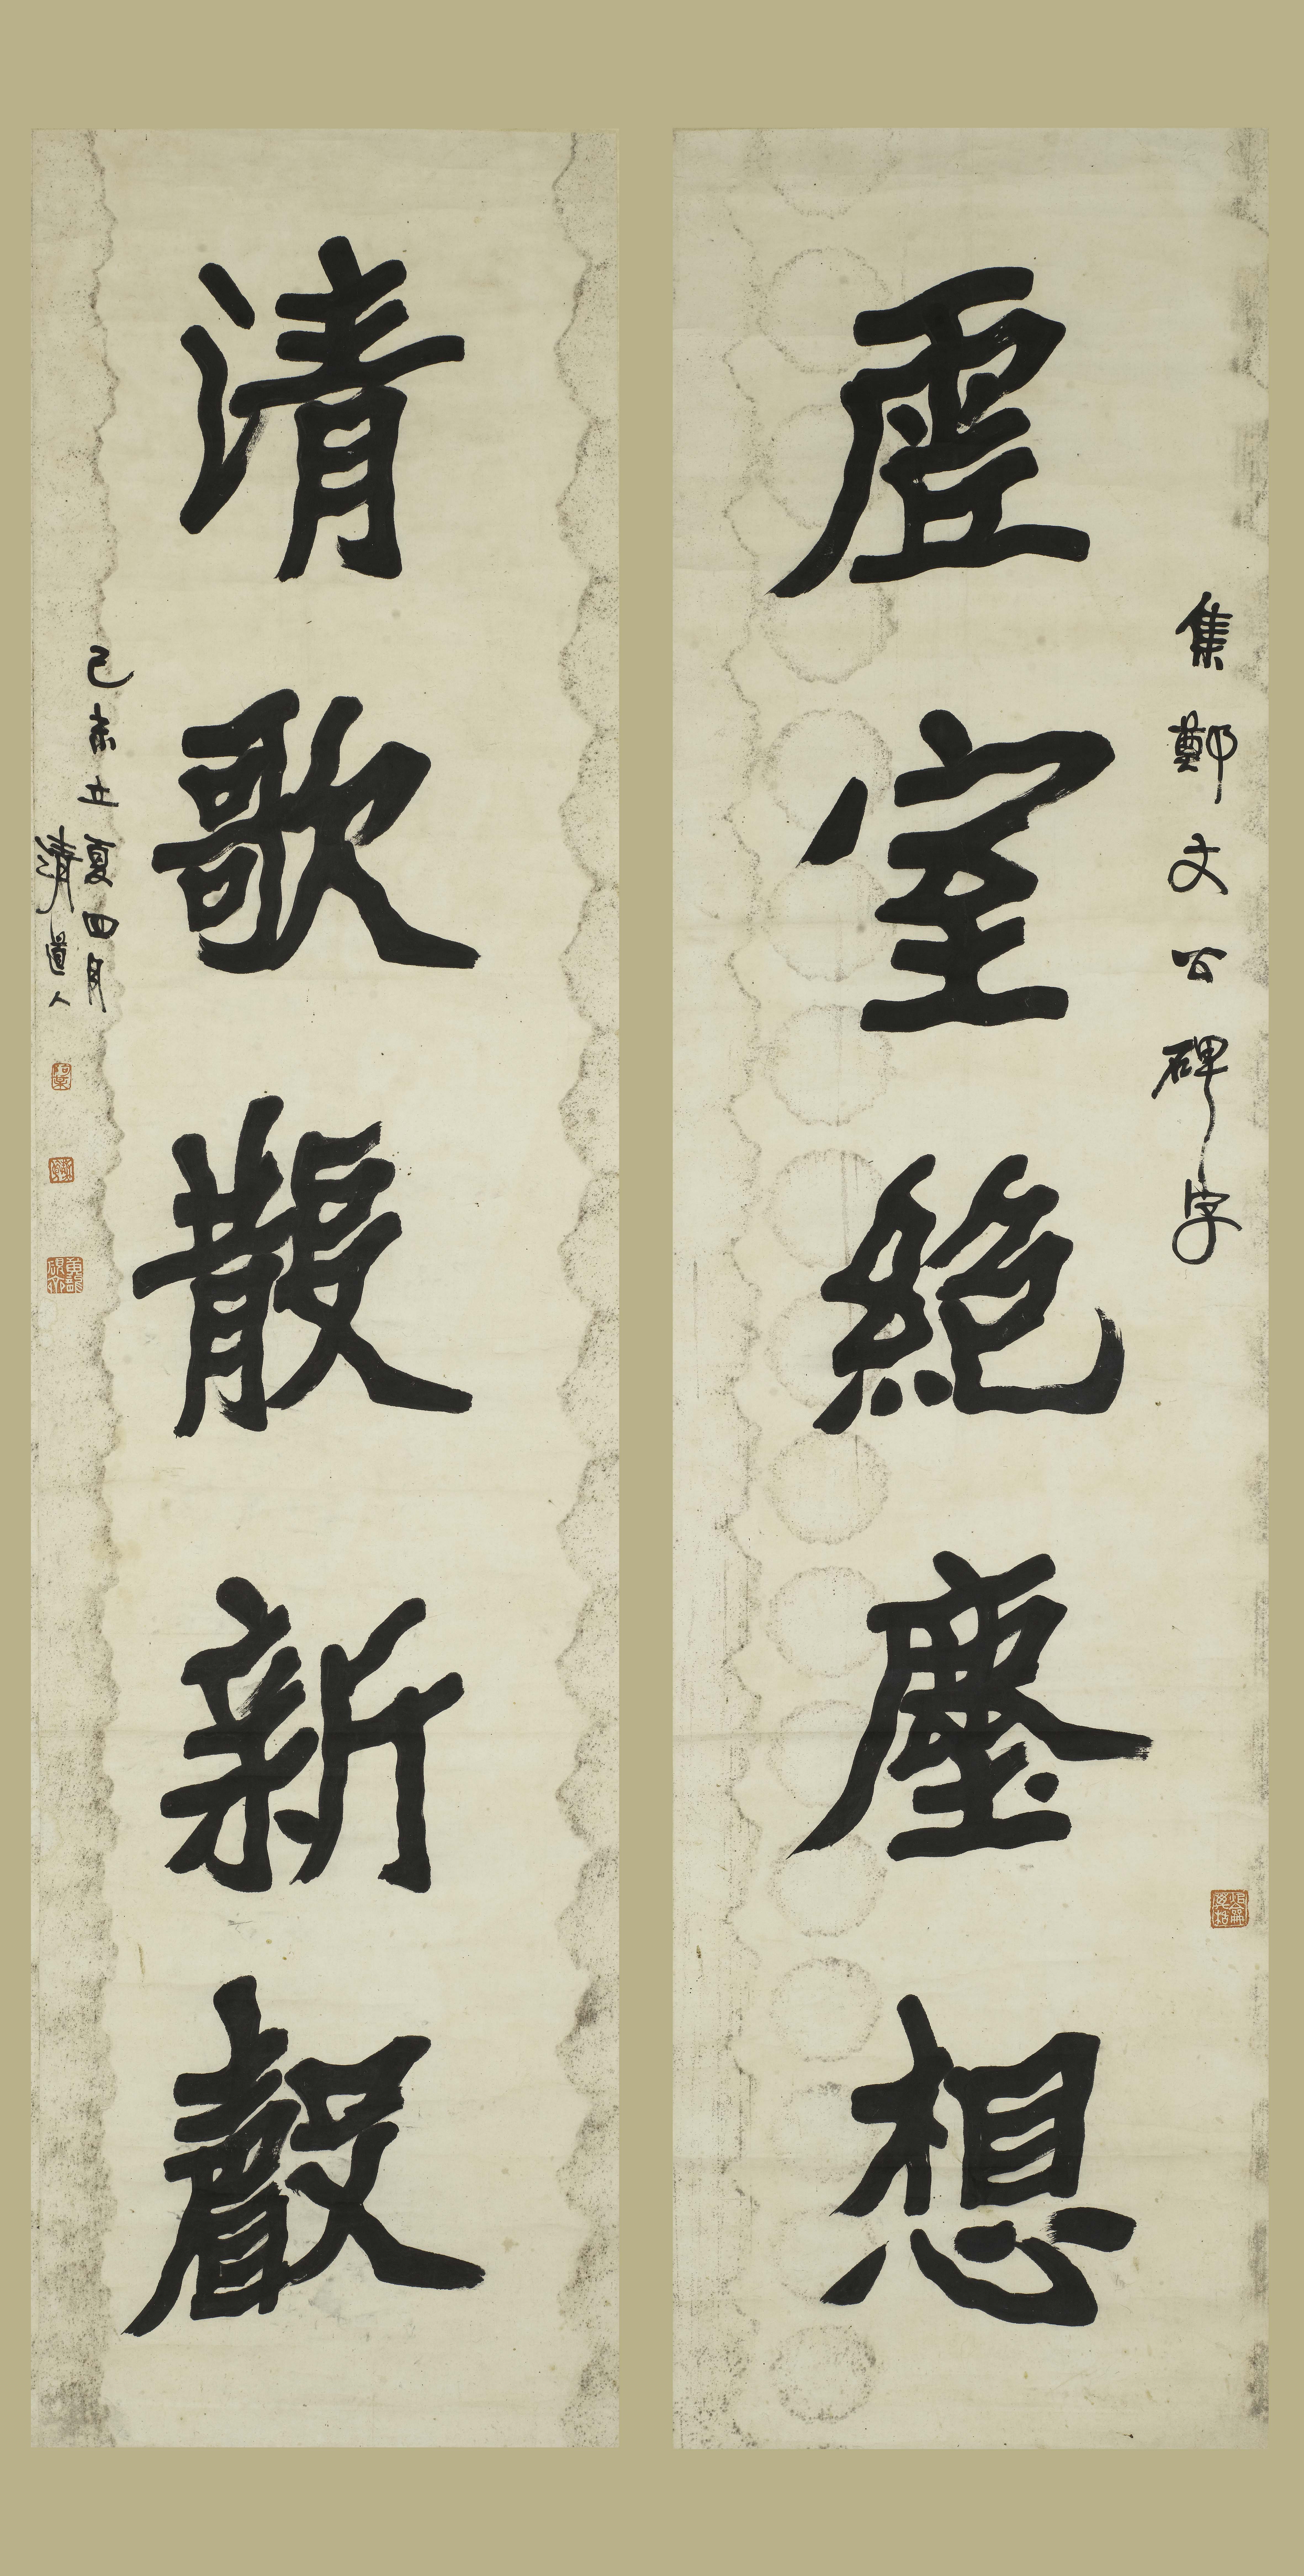 集鄭文公碑字
虛室絕塵想
清歌散新聲
己未立夏四月
清道人